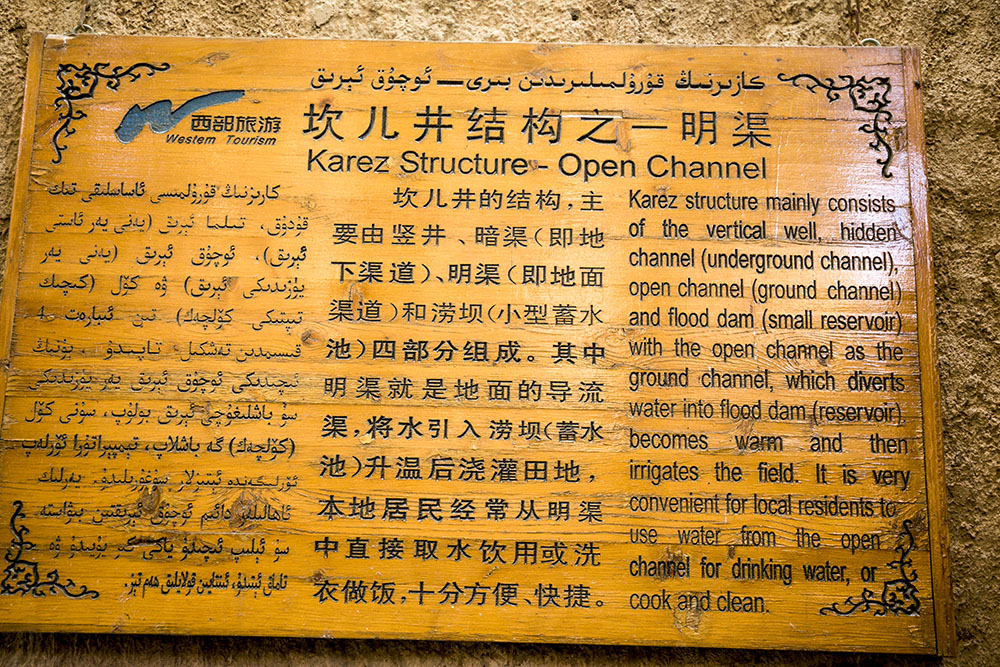 كارىزنىڭ قۇرۇلمىلىرىدىن بىرى— ئوچۇق ئېرىق
西部旅游
Western Tourism
坎儿井结构之一明渠
Karez Structure - Open Channel
كارىزنىڭ قۇرۇلمىسى ئاساسلىقى تىك
قۇدۇق، تىلما ئېرىق (يەنى يەر ئاستى
ئېرىق)، ئوچۇق ئېرىق (يەنى يەر
يۈزىدىكى ئېرىق) ۋە كۆل (كىچىك
تىپتىكى كۆلچەك) تىن ئىبارەت 4
قىسىمدىن تەشكىل تاپىدۇ، بۇنىڭ
ئىچىدىكى ئوچۇق ئېرىق يەر يۈزىدىكى
سۇ باشلىغۇچى ئېرىق بولۇپ، سۇنى كۆل
(كۆلچەك) گە باشلاپ، تېمپىراتۇرا ئۆرلەپ
سۇ ئېلىپ ئىچىدۇ ياكى كىر يۇيىدۇ ۋە
تاماق ئېتىدۇ، ئىنتايىن قولايلىق ھەم تېز.
坎儿井的结构，主
要由竖井、暗渠（即地
下渠道）、明渠（即地面
渠道）和涝坝（小型蓄水
池）四部分组成。其中
明渠就是地面的导流
渠，将水引入涝坝（蓄水
池）升温后浇灌田地，
本地居民经常从明渠
中直接取水饮用或洗
衣做饭，十分方便、快捷。
Karez structure mainly consists
of the vertical well, hidden
channel (underground channel),
open channel (ground channel)
and flood dam (small reservoir)
with the open channel as the
ground channel, which diverts
water into flood dam (reservoir)
becomes warm and then
irrigates the field. It is very
convenient for local residents to
use water from the open
channel for drinking water, or
cook and clean.